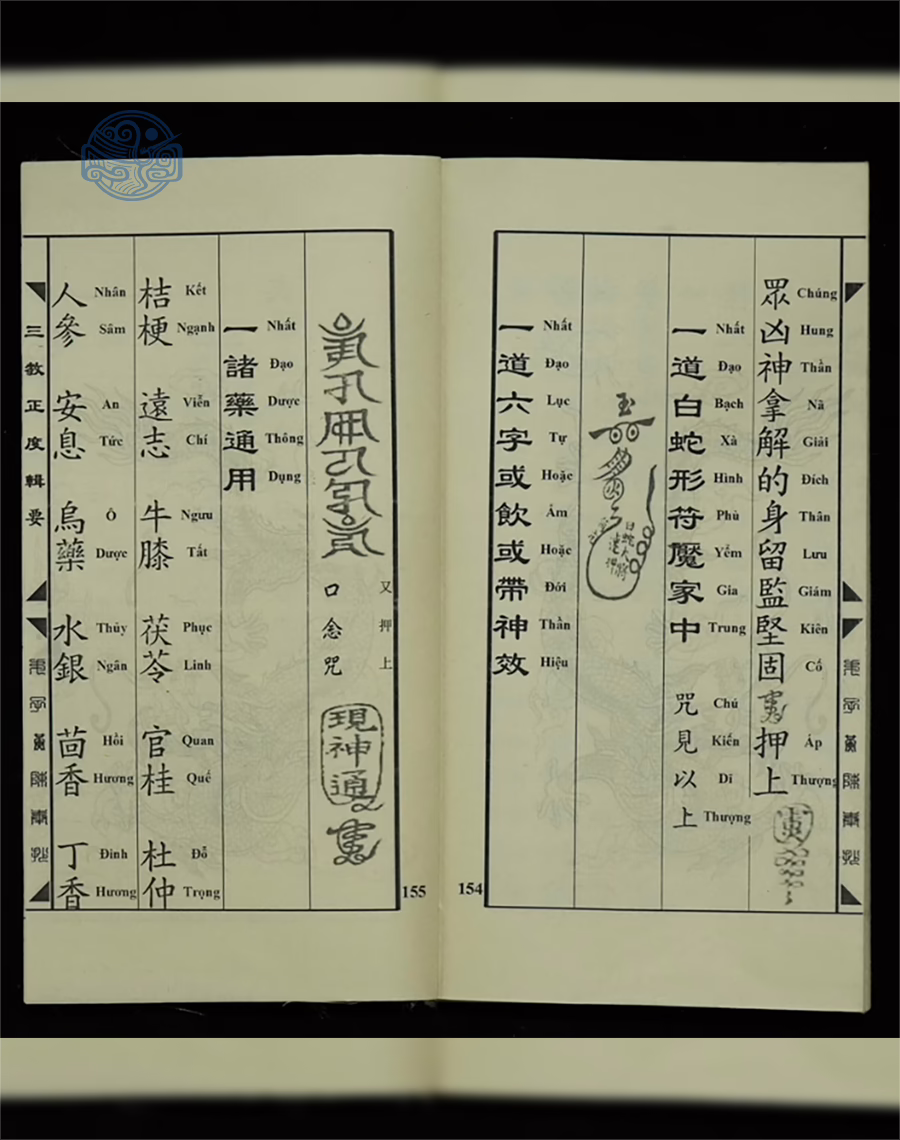 眾凶神拿解的身留監堅固 押上
Chúng Hung Thần Nã Giải Đích Thân Lưu Giám Kiên Cố Áp Thượng
一道白蛇形符魘家中 咒見以上
Nhất Đạo Bạch Xà Hình Phù Yểm Gia Trung Chú Kiến Dĩ Thượng
玉
白蛇大將
一道六字或飲或帶神效
Nhất Đạo Lục Tự Hoặc Ẩm Hoặc Đới Thần Hiệu
154
又押上
口念咒
現神通
一諸藥通用
Nhất Đạo Dược Thông Dụng
桔梗 遠志 牛膝 茯苓 官桂 杜仲
Kết Ngạnh Viễn Chí Ngưu Tất Phục Linh Quan Quế Đỗ Trọng
人參 安息 烏藥 水銀 茴香 丁香
Nhân Sâm An Tức Ô Dược Thủy Ngân Hồi Hương Đinh Hương
三教正度輯要
155